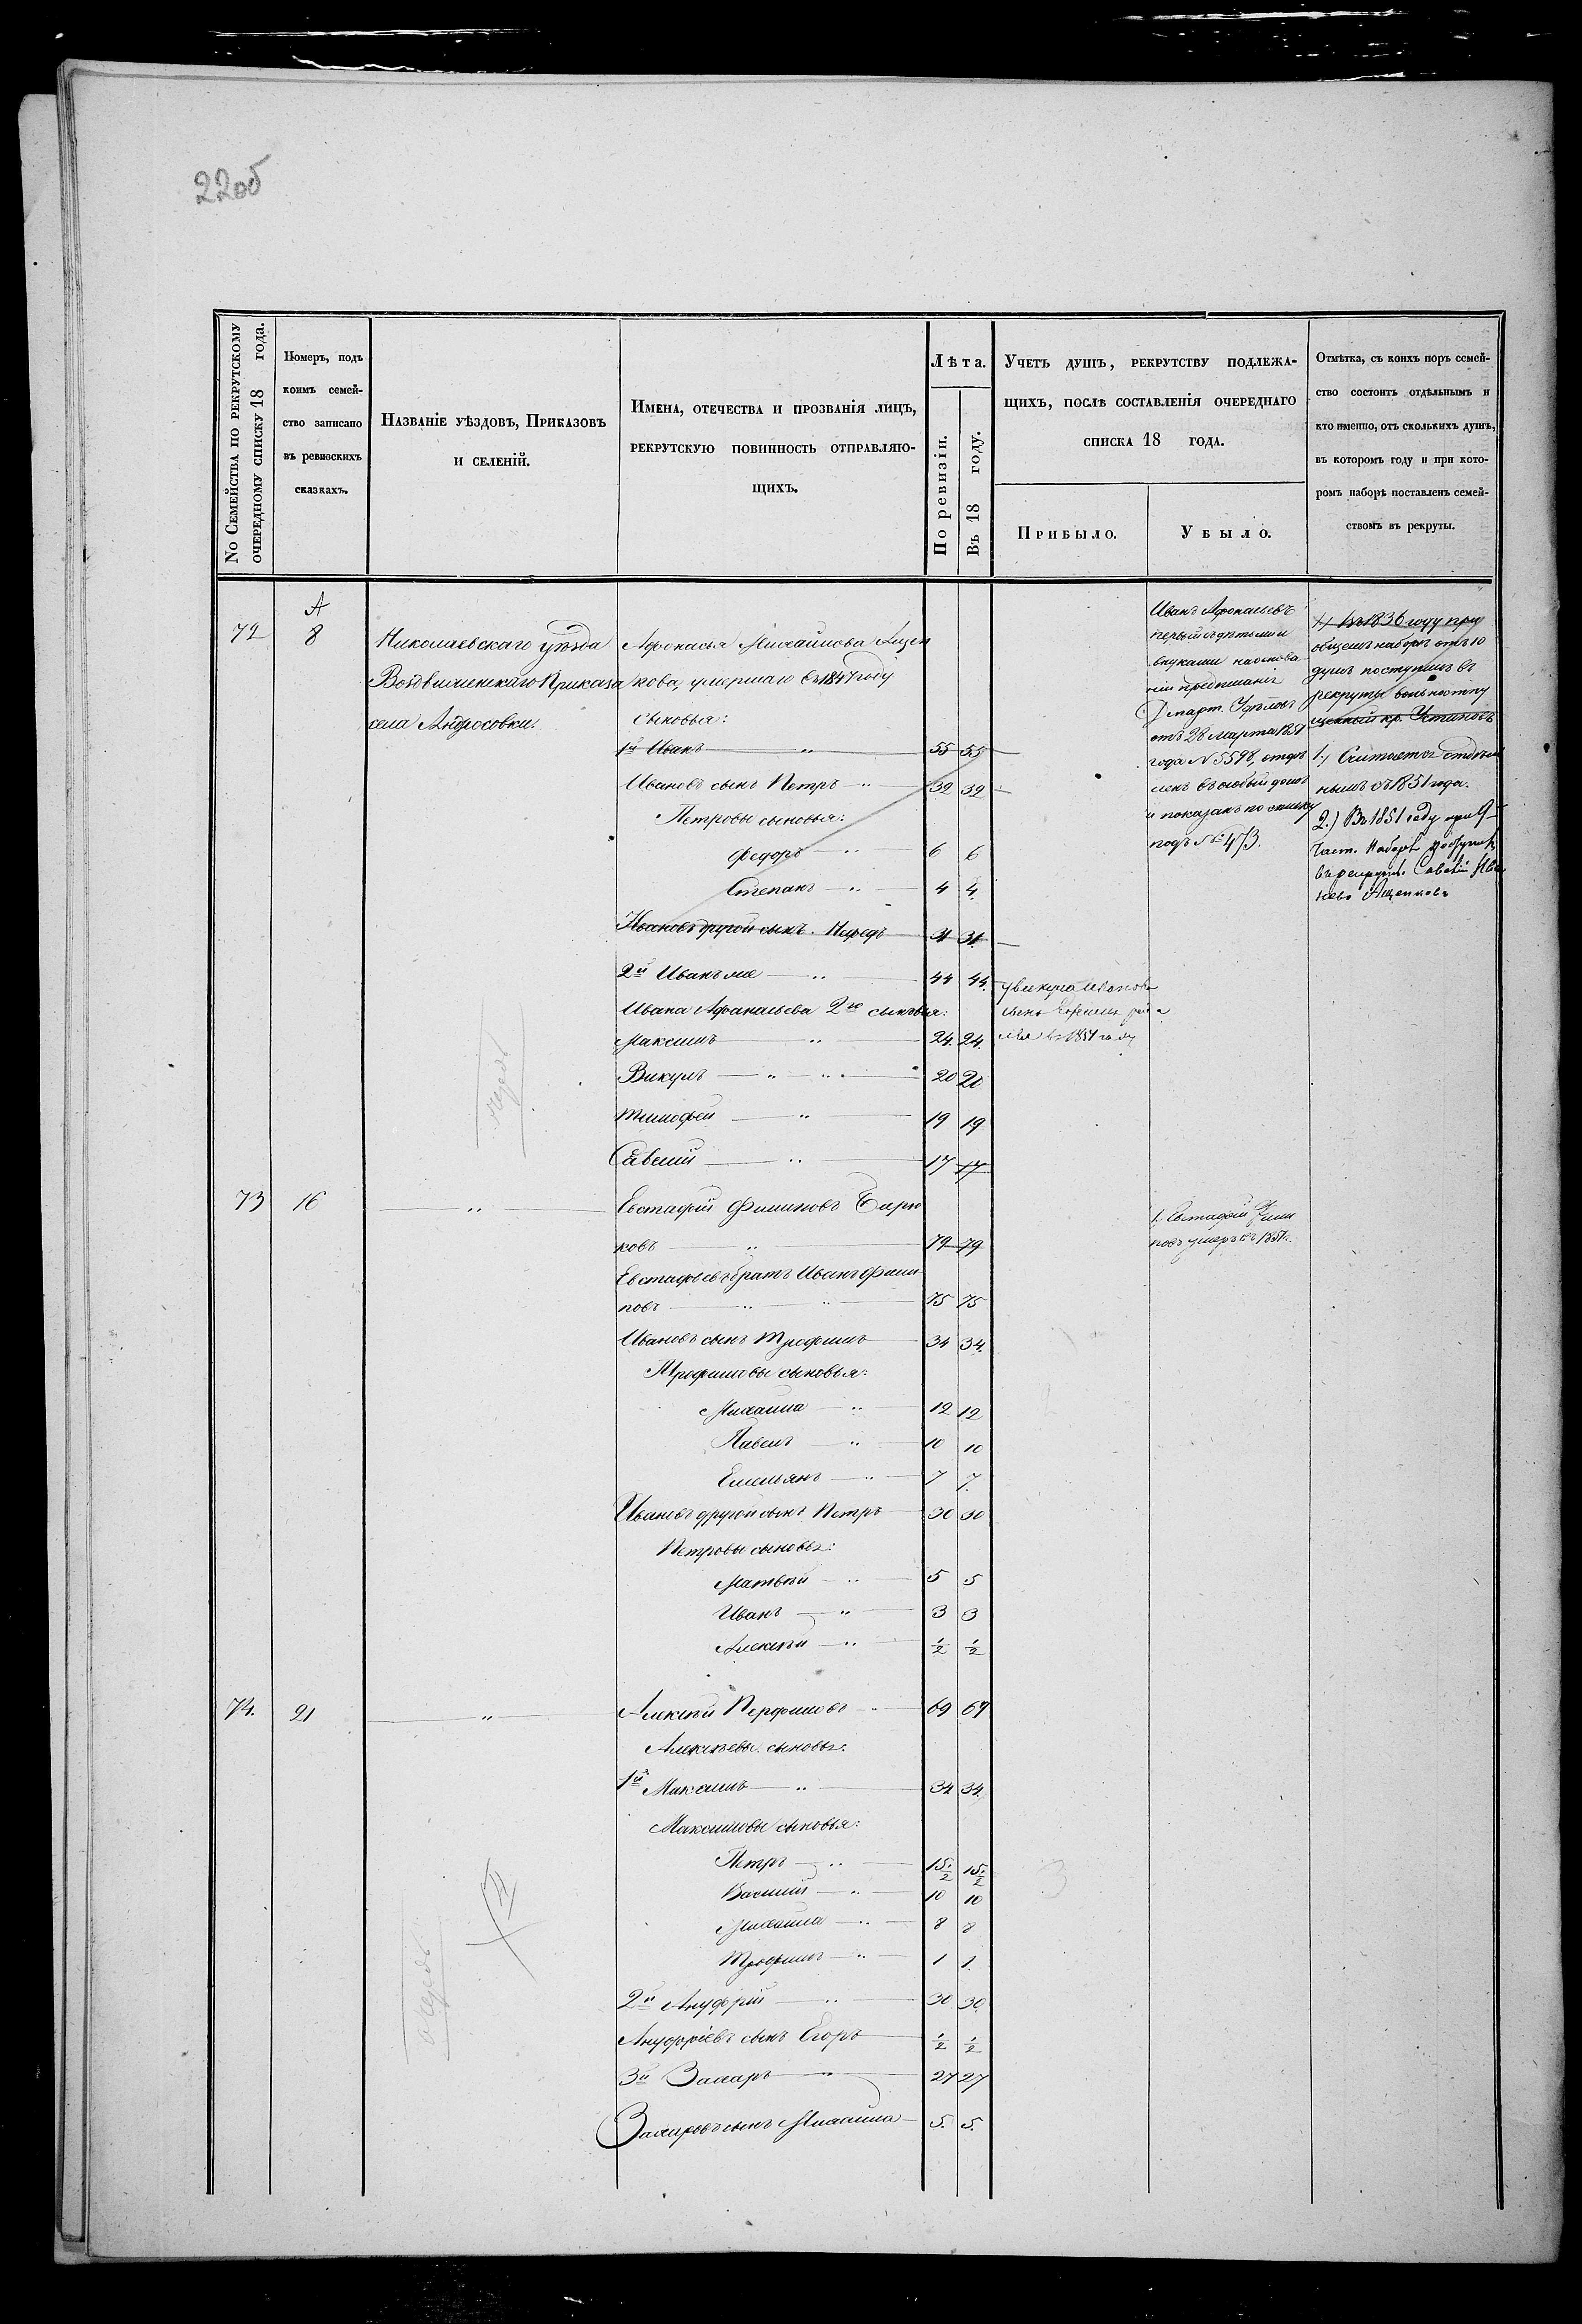 22об
№ Семейства по рекрутскому
очередному списку 18 года.
Номеръ, подъ
коимъ семей-
ство записано
въ ревизскихъ
сказкахъ.
Названіе уѣздовъ, Приказовъ
и селеній.
Имена, отечества и прозванія лицъ,
рекрутскую повинность отправляю-
щихъ.
Лѣта.
По ревизіи.
Въ 18 году.
Учетъ душъ, рекрутству подлежа-
щихъ, послѣ составленія очереднаго
списка 18 года.
Прибыло.
Убыло.
Отмѣтка, съ коихъ поръ семей-
ство состоитъ отдѣльнымъ и
кто именно, отъ сколькихъ душъ,
въ которомъ году и при кото-
ромъ наборѣ поставленъ семей-
ствомъ въ рекруты.
72
А
8
Николаевскаго уѣзда
Воздвиженскаго Приказа
села Андросовки.
Афонасья Михайлова Ащен
кова, умершаго въ 1847 году
сыновья:
1й Иванъ 55 55
Ивановъ сынъ Петръ 32 32
Петровы сыновья:
Федоръ 6 6
Степанъ 4 4
Ивановъ другой сынъ Нефедъ 31 31
2й Иванъ же 44 44
Ивана Афанасьева 2го сыновья:
Максимъ 24 24
Викулъ 20 20
Тимофей 19 19
Савелій 17 17
у Викула Иванова
сынъ
1851 году
Иванъ Афонасьевъ
первый съ дѣтьми и
внуками на основа-
ніи предписанія
Департ. Удѣловъ
отъ 28 марта 1851
года № 5598, отдѣ
ленъ въ особый домъ
и показанъ по списку
подъ № 473.
1) Въ 1836 году при
общемъ наборѣ отъ 10
душъ поступилъ въ
рекруты
кр. Устиновъ
1.) Считается отдѣль
нымъ съ 1851 года.
2.) Въ 1851 году при 9
част. Наборѣ поступилъ
въ рекруты Савелій Ива
новъ Ащенковъ
73 16
Евстафій Филиповъ Бирю
ковъ 79 79
Евстафьевъ братъ Иванъ Фили-
повъ 75 75
Ивановъ сынъ Трофимъ 34 34
Трофимовы сыновья:
Михаила 12 12
Павелъ 10 10
Емельянъ 7 7
Ивановъ другой сынъ Петръ 30 30
Петровы сыновья:
Матвѣй 5 5
Иванъ 3 3
Алексѣй ½ ½
1. Евстафій Фили
повъ умеръ въ 1851.
74. 21
Алексѣй Перфиловъ 69 69
Алексѣевы сыновья:
1й Максимъ 34 34
Максимовы сыновья:
Петръ 15½ 15½
Василій 10 10
Михаила 8 8
Трофимъ 1 1
2й Ануфрій 30 30
Ануфріевъ сынъ Егоръ ½ ½
3й Захаръ 27 27
Захаровъ сынъ Михаила 5. 5.